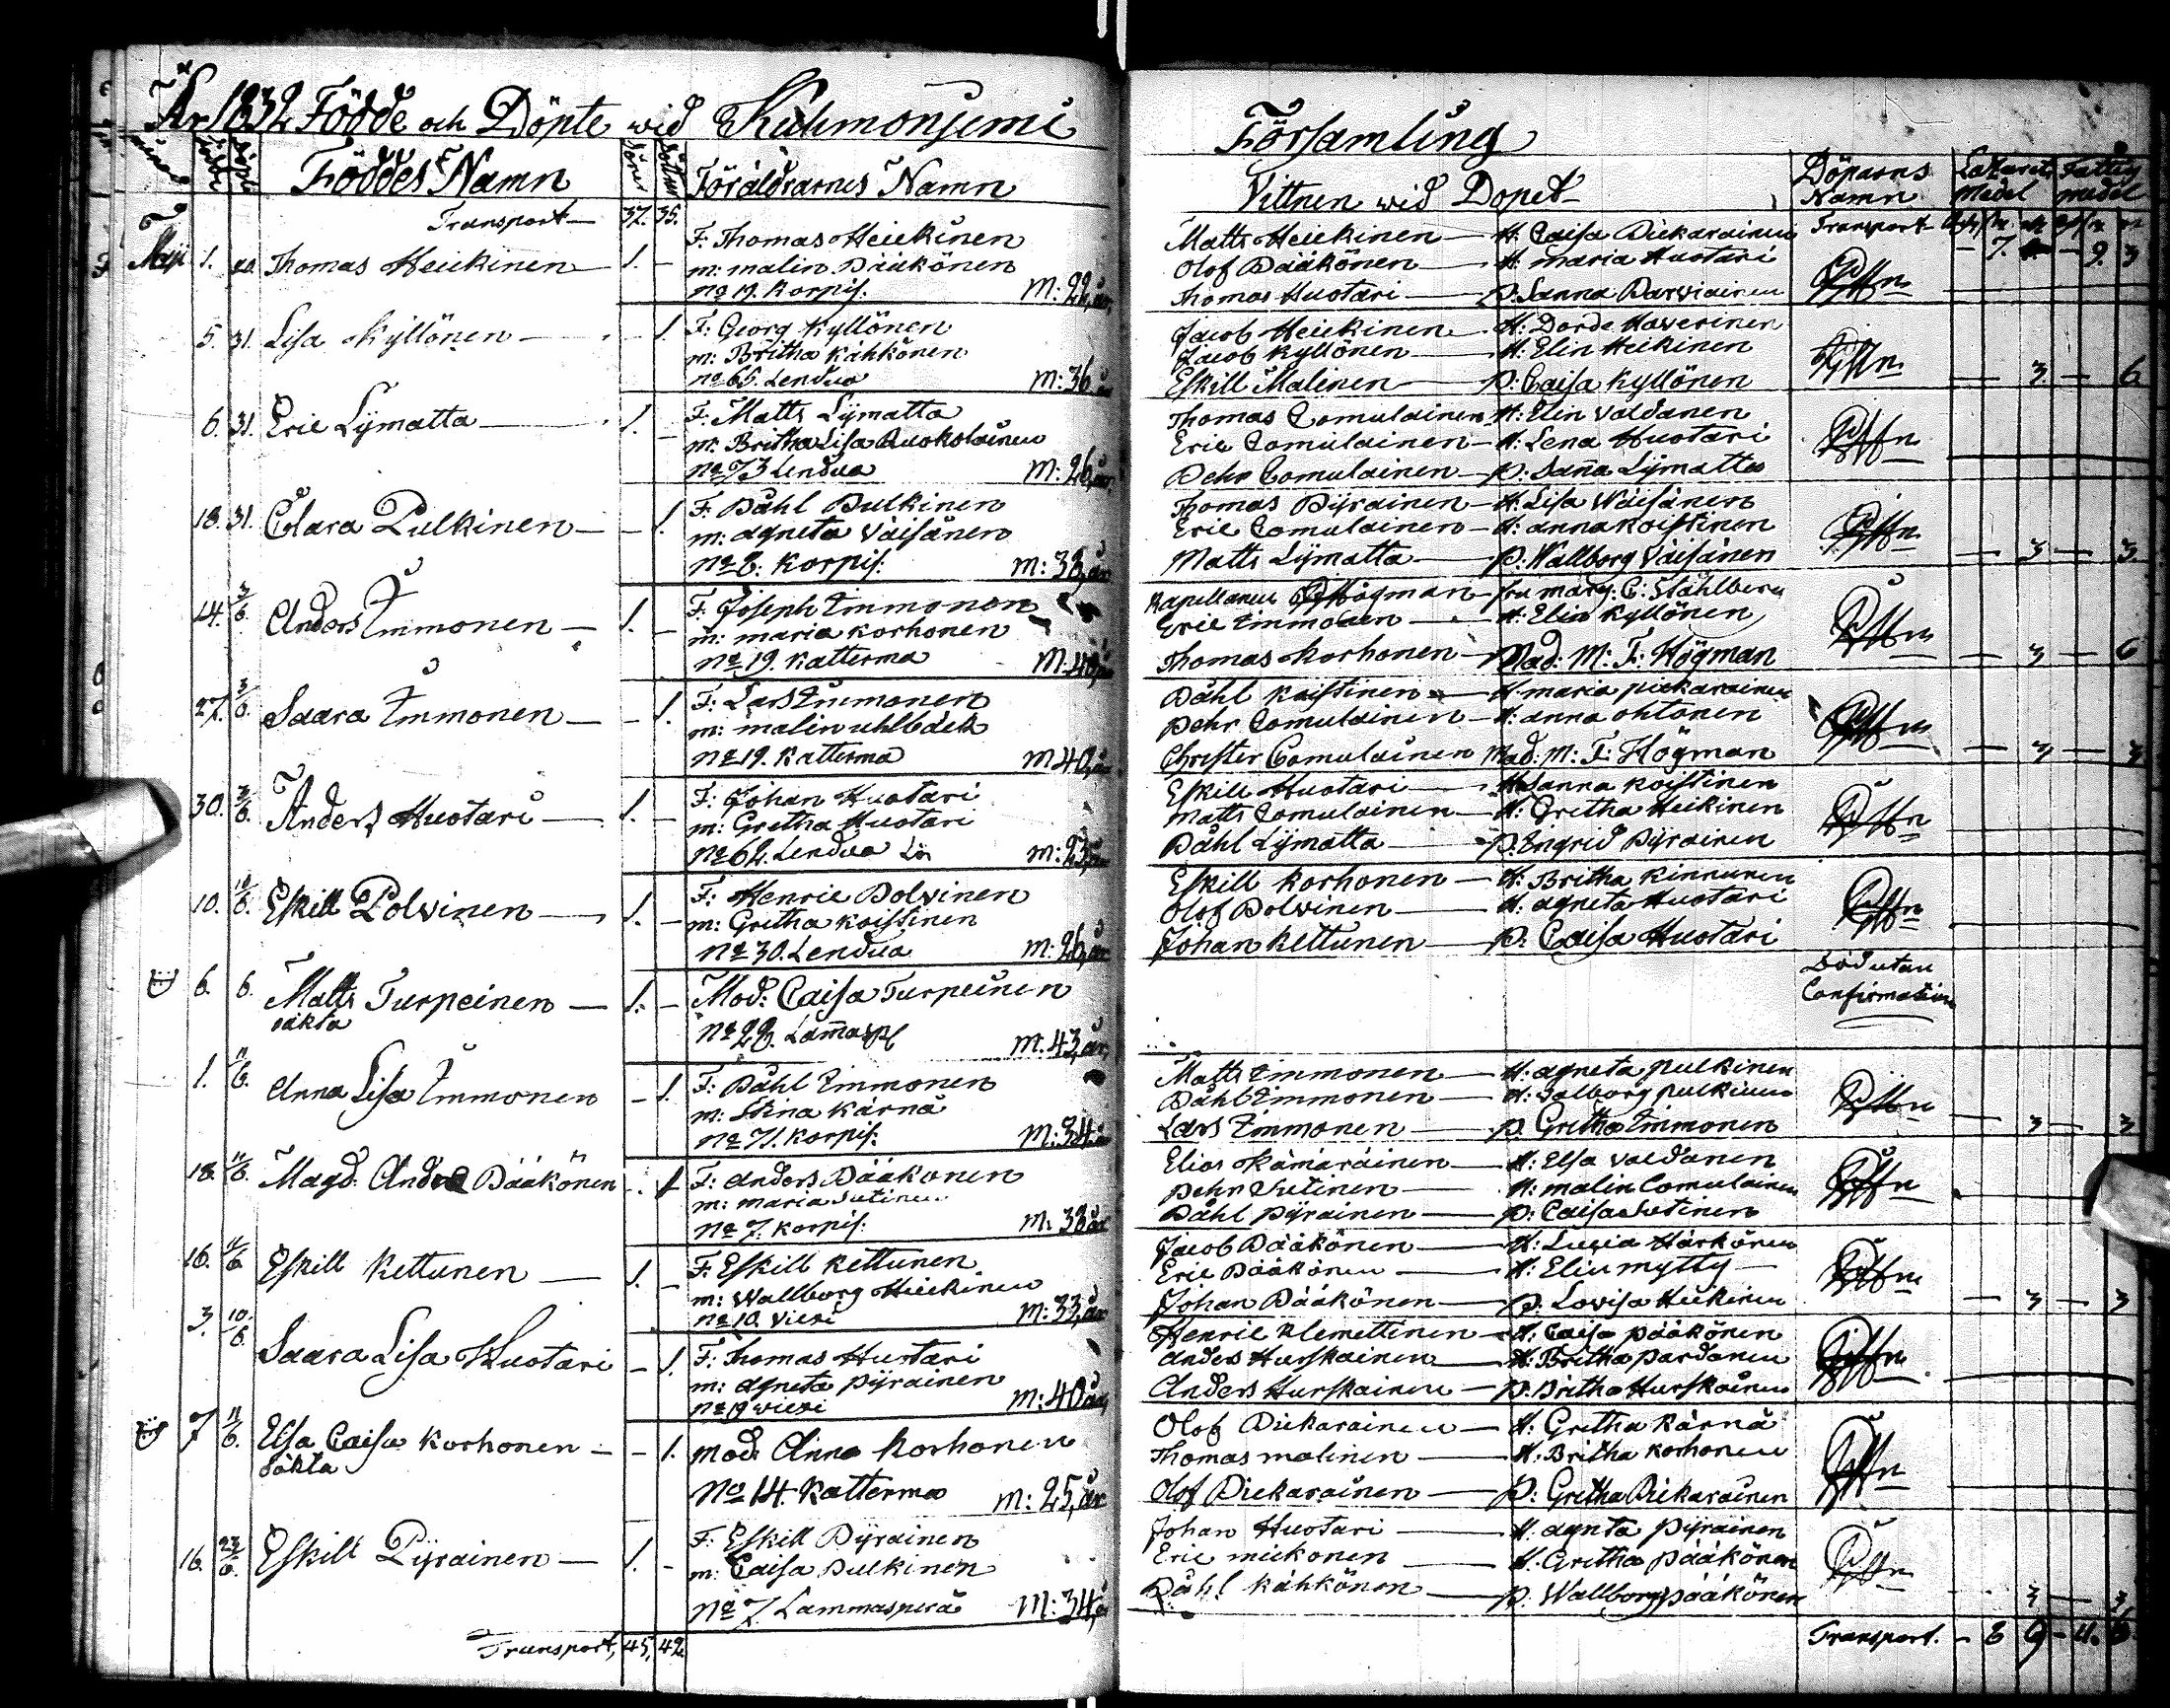 År 1832 Födde och Döpte wid Kuhmonjemi Församling
Födde Döpte Föddes Namn Söner Döttrar Föräldrarnes Namn Vittnen wid Dopet Döparns Namn Lazarets Medel Fattig medel
Transport 37. 35. Transport
Maji 1. 20. Thomas Heickinen 1. –
F: Thomas Heickinen
m: malin Pääkönen
No 19. Korpis: M: 22, år
Matts Heickinen – H: Caisa Pickarainen
Olof Pääkönen – H: maria Huotari – 7. – 9. 3
Thomas Huotari – P: Sanna Parviainen
5. 31. Lisa Kyllönen – 1.
F: Georg Kyllönen
m: Britha Kähkönen
No 66. Lendua M: 36 år
Jacob Heickinen – H: Dorde Haverinen
Jacob Kyllönen – H: Elin Heikinen
Eskill Malinen – P: Caisa Kyllönen – 3 – 6
6. 31. Eric Lÿmatta 1. –
F: Matts Lÿmatta
m: Britha Lisa Ruokolainen
No 73 Lendua M: 26, år
Thomas Comulainen H: Elin Valdanen
Eric Comulainen – H: Lena Huotari
Pehr Comulainen – P: Saña Lÿmatta
18. 31. Clara Pulkinen – 1.
F: Påhl Pulkinen
m: agneta Väisänen
No 6. Korpis: M: 38, år
Thomas Pÿrainen – H: Lisa Wäisänen
Eric Comulainen – H: anna Koistinen
Matts Lÿmatta – P: Wallborg Väisänen – 3 – 3.
14. 3/6. Anders Immonen – 1. –
F: Joseph Immonen
m: maria Korhonen
No 19. Katterma M: 40, år
Kapellanen Högman – fru marg: C: Ståhlberg
Eric Immonen – H: Elin Kyllönen
Thomas Korhonen – Mad: M: F: Högman – 3 – 6
27. 3/6. Saara Immonen – – 1.
F: Lars Immonen
m: malin uhlbäck
No 19. Katterma M 40, år
Påhl Koistinen – H: maria pickarainen
Pehr Comulainen – H: anna ohtonen
Christer Comulainen Mad: M: F: Högman – 3 – 3
30. 3/6. Anders Huotari – 1. –
F: Johan Huotari
m: Gretha Huotari
No 62. Lendua M: 23, år
Eskill Huotari – H: Sanna Koistinen
Matts Comulainen – H: Gretha Heikinen
Påhl Lÿmatta – P: Ingrid Pÿrainen
10. 10/6. Eskill Polvinen – 1. –
F: Henric Polvinen
m: Gretha Koistinen
No 30. Lendua M: 26, år
Eskill Korhonen – H: Britha Kinnunen
Olof Polvinen – H: agneta Huotari
Johan Kettunen – P: Caisa Huotari
6. 6. Matts Turpeinen – 1. –
oäkta
Mod: Caisa Turpeinen
No 28. Lam̄asp M: 43, år
Död utan
Confirmation
1. 11/6. Anna Lisa Immonen – 1.
F: Påhl Immonen
m: Stina Kärnä
No 71. Korpis: M: 34 år
Matts Immonen – H: agneta pulkinen
Påhl Immonen – H: Valborg pulkinen
Lars Immonen – P: Gretha Immonen – 3 – 3
18. 11/6. Magd: Andrea Pääkönen – 1
F: anders Pääkonen
m: maria Sutinen
No 7. Korpis: M: 38 år
Elias Kämäräinen – H: Elsa Valdanen
Pehr Sutinen – H: malin Comulainen
Påhl Pÿrainen – P: Caisa Sutinen
16. 11/6 Eskill Kettunen – 1. –
F: Eskill Kettunen
m: Wallborg Heickinen
No 10. Viexi M: 33, år
Jacob Pääkönen – H: Lucia Härkönen
Eric Pääkönen – H: Elin mytty –
Johan Pääkönen – P: Lovisa Heikinen – 3 – 3
3. 10/6. Saara Lisa Huotari – 1.
F: Thomas Huotari
m: agneta pÿrainen
No 19 wiexi M: 40 år,
Henric Klemettinen – H: Caisa pääkönen
anders Hurskainen – H: Britha pardanen
Anders Hurskainen – P: Britha Hurskainen
7 11/6. Elsa Caisa Korhonen – – 1.
oäkta
mod: Anna Korhonen
No 14. Katterma m: 25, år
Olof Pickarainen – H: Gretha Kärnä
Thomas malinen – H: Britha Korhonen
Olof Pickarainen – P: Gretha Pickarainen
16. 23/6. Eskill Pÿrainen – 1. –
F: Eskill Pÿrainen
m: Caisa Pulkinen
No 7. Lammasperä M: 34, år
Johan Huotari – H: agneta Pÿrainen
Eric mickonen – H: Gretha Pääkönen
Påhl Kähkönen – P: Wallborg pääkönen – 3 – 3
Transport, 45, 42 Transport. – 8 9 – 11. 6.